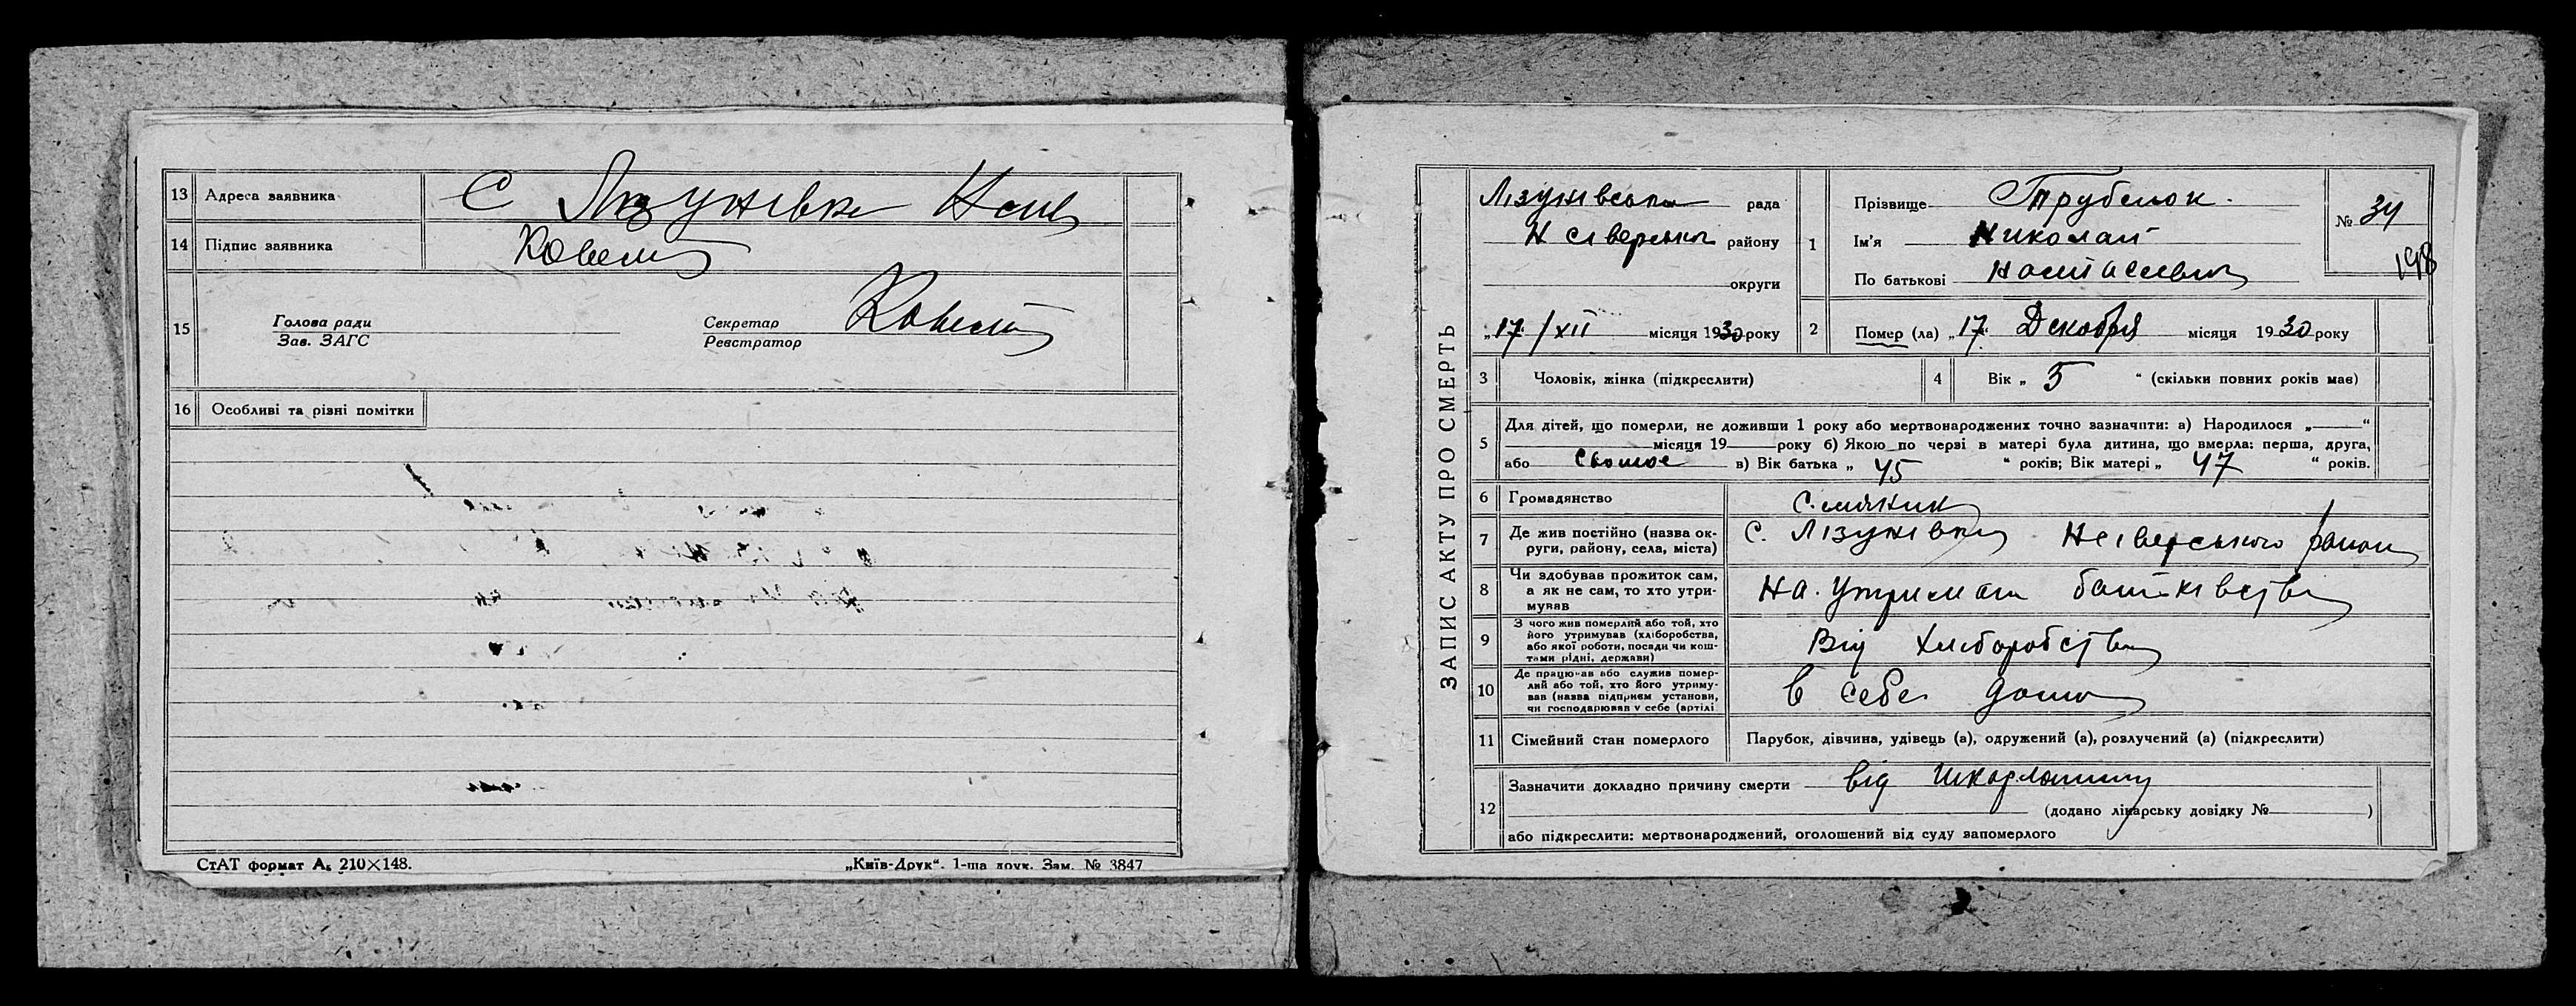 13 Адреса заявника С Лізунівка Нсів
14 Підпис заявника
15 Голова ради
Зав. ЗАГС
Секретар
Реєстратор
16 Особливі та різні помітки
СтАТ формат А₅ 210×148. „Київ-Друк“. 1-ша друк. Зам. № 3847
ЗАПИС АКТУ ПРО СМЕРТЬ
Лізунівська рада
Н сіверськ району
округи
„17“ / XII місяця 1930 року
1 Прізвище Трубенок.
Ім'я Николай
По батькові
№ 34
198
2 Помер (ла) „17“ Декабря місяця 1930 року
3 Чоловік, жінка (підкреслити)
4 Вік „ 5 “ (скільки повних років мав)
5 Для дітей, що померли, не доживши 1 року або мертвонароджених точно зазначити: а) Народилося „ “
місяця 19 року б) Якою по черзі в матері була дитина, що вмерла: перша, друга,
або в) Вік батька „ 45 “ років; Вік матері „ 47 “ років.
6 Громадянство Селянин
7 Де жив постійно (назва округи, району, села, міста) С. Лізунівка Нсіверського району
8 Чи здобував прожиток сам, а як не сам, то хто утримував На утриман батьківства
9 З чого жив померлий або той, хто його утримував (хліборобства, або якої роботи, посади чи коштами рідні, держави) Від хліборобства
10 Де працював або служив померлий або той, хто його утримував (назва підприєм установи, чи господарював у себе (артілі в себе дома
11 Сімейний стан померлого Парубок, дівчина, удівець (а), одружений (а), розлучений (а) (підкреслити)
12 Зазначити докладно причину смерти від шкарлатини
(додано лікарську довідку № )
або підкреслити: мертвонароджений, оголошений від суду запомерлого